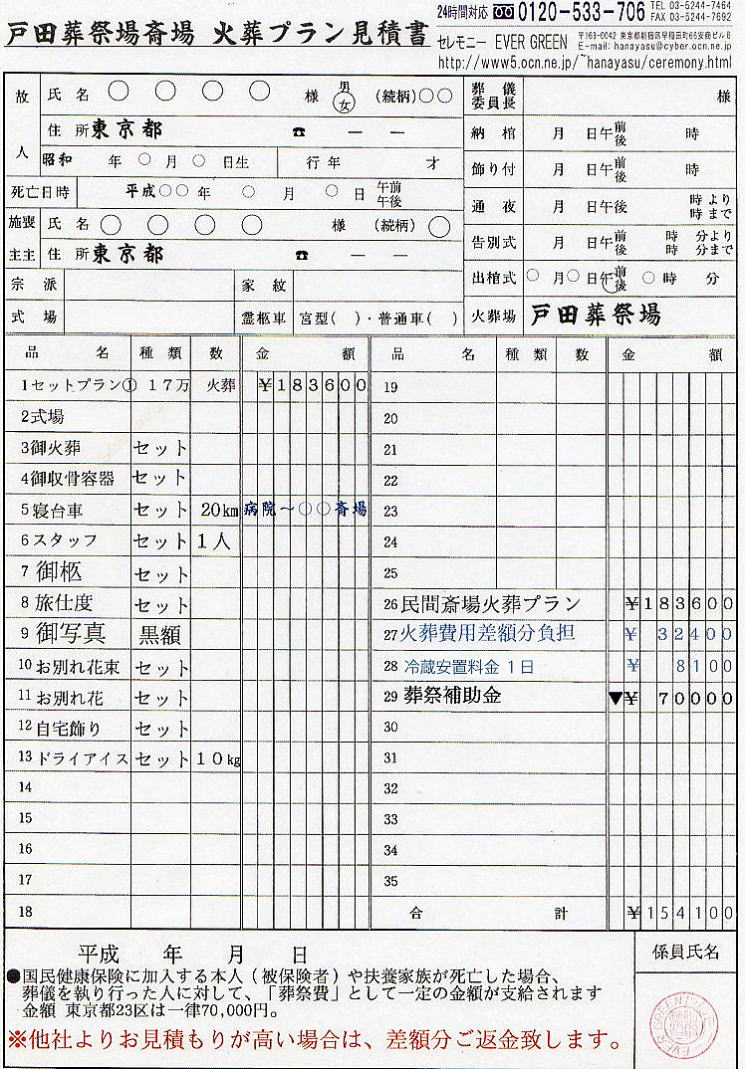 戸田葬祭場斎場 火葬プラン見積書
24時間対応 0120-533-706 TEL 03-5244-7464
FAX 03-5244-7692
セレモニー EVER GREEN 〒163-0042 東京都新宿区早稲田町66安商ビル6
E-mail: hanayasu@cyber.ocn.ne.jp
http://www5.ocn.ne.jp/~hanayasu/ceremony.html
故人 氏名 ○ ○ ○ ○ 様 男 女 (続柄)○○
住所 東京都 ☎ ― ―
昭和 年 ○ 月 ○ 日生 行年 才
死亡日時 平成○○年 ○ 月 ○ 日 午前 午後
施主 喪主 氏名 ○ ○ ○ ○ 様 (続柄) ○
住所 東京都 ☎ ― ―
宗派 家紋
式場 霊柩車 宮型( )・普通車( )
葬儀委員長 様
納棺 月 日午前後 時
飾り付 月 日午前後 時
通夜 月 日午後 時より 時まで
告別式 月 日午前後 時 分より 時 分まで
出棺式 ○月○日午前後 ○時 分
火葬場 戸田葬祭場
品名 種類 数 金額
1 セットプラン① 17万 火葬 ¥183600
2 式場
3 御火葬 セット
4 御収骨容器 セット
5 寝台車 セット 20km 病院～○○斎場
6 スタッフ セット 1人
7 御柩 セット
8 旅仕度 セット
9 御写真 黒額
10 お別れ花束 セット
11 お別れ花 セット
12 自宅飾り セット
13 ドライアイス セット 10kg
14
15
16
17
18
品名 種類 数 金額
19
20
21
22
23
24
25
26 民間斎場火葬プラン ¥183600
27 火葬費用差額分負担 ¥32400
28 冷蔵安置料金 1日 ¥8100
29 葬祭補助金 ▼¥70000
30
31
32
33
34
35
合計 ¥154100
平成 年 月 日
●国民健康保険に加入する本人（被保険者）や扶養家族が死亡した場合、
葬儀を執り行った人に対して、「葬祭費」として一定の金額が支給されます
金額 東京都23区は一律70,000円。
※他社よりお見積もりが高い場合は、差額分ご返金致します。
係員氏名